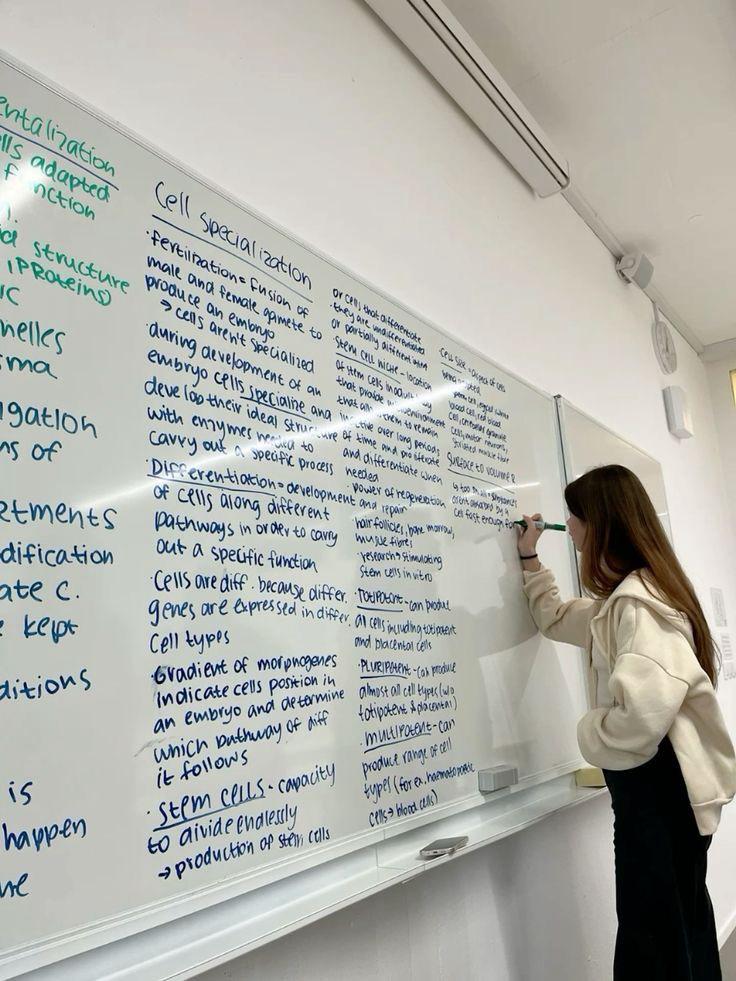 entalization
lls adapted
function
structure
(PROteins)
nelles
sma
igation
ns of
etments
dification
ate C.
kept
ditions
is
happen
Cell specialization
·fertilization = fusion of
male and female gamete to
produce an embryo
→ cells aren't specialized
·during development of an
embryo cells specialize and
develop their ideal structure
with enzymes needed to
carry out a specific process
·Differentiation = development
of cells along different
pathways in order to carry
out a specific function
·Cells are diff. because differ.
genes are expressed in differ.
cell types
·Gradient of morphogenes
indicate cells position in
an embryo and determine
which pathway of diff
it follows
·Stem cells - capacity
to divide endlessly
→ production of stem cells
or cells that differentiate
·they are undifferentiated
or partially differentiated
·Stem cell niche - location
of stem cells in adult body
that provide environment
that allow them to remain
inactive over long periods
of time and proliferate
and differentiate when
needed
·power of regeneration
and repair
hair follicles, bone marrow,
muscle fibres
·research → stimulating
stem cells in vitro
·TOTIPOTENT - can produce
all cells including totipotent
and placental cells
·PLURIPOTENT - can produce
almost all cell types (w/o
totipotent & placental)
·MULTIPOTENT - can
produce range of cell
types (for ex. haematopoetic
cells → blood cells)
·Cell size - aspect of cell
being adapted
blood cell, red blood
cell, cerebellar granule
cells, motor neurons,
striated muscle fibre
Surface to volume R
cell fast enough